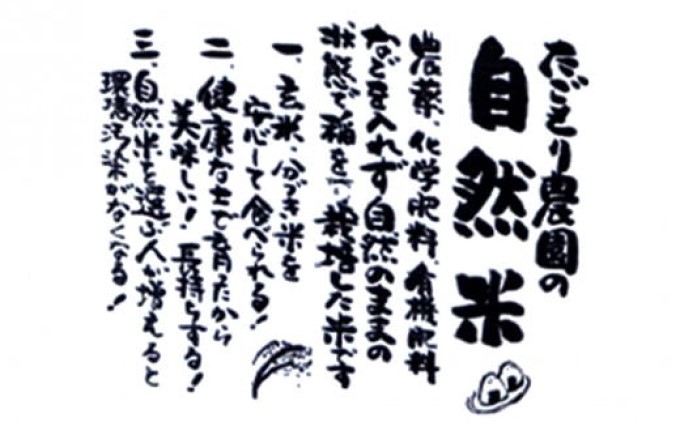 なごえり農園の
自然米
農薬、化学肥料、有機肥料
などを入れず自然のままの
状態で稲を栽培した米です
一、玄米、分づき米を
安心して食べられる！
二、健康な土で育ったから
美味しい！長持ちする！
三、自然米を選ぶ人が増えると
環境汚染がなくなる！